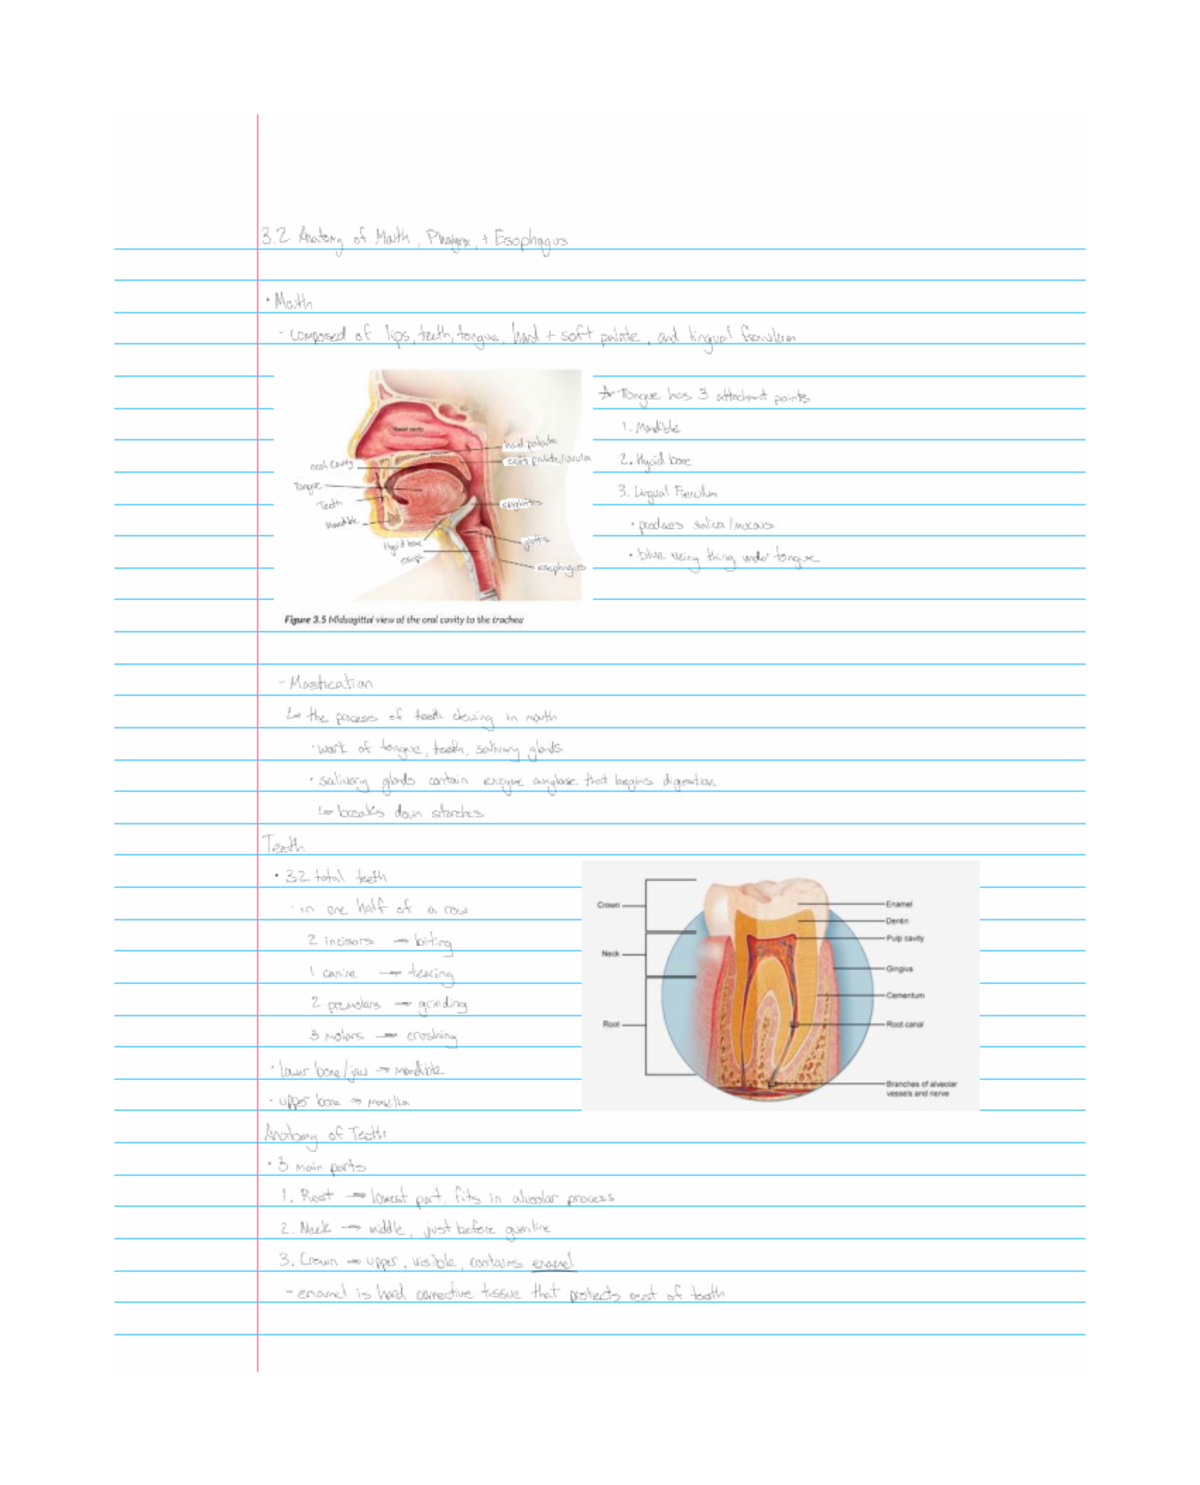 3.2 Anatomy of Mouth, Pharynx, + Esophagus
• Mouth
- composed of lips, teeth, tongue, hard + soft palate, and lingual frenulum
Nasal cavity
hard palate
soft palate/uvula
oral cavity
Tongue
Teeth
Mandible
Hyoid bone
epiglottis
glottis
esophagus
Figure 3.5 Midsagittal view of the oral cavity to the trachea
Tongue has 3 attachment points
1. Mandible
2. Hyoid bone
3. Lingual Frenulum
• produces saliva/mucous
• blue veiny thing under tongue
- Mastication
↳ the process of teeth chewing in mouth
• work of tongue, teeth, salivary glands
• salivary glands contain enzyme amylase that begins digestion
↳ breaks down starches
Teeth
• 32 total teeth
- in one half of a row
2 incisors → biting
1 canine → tearing
2 premolars → grinding
3 molars → crushing
• lower bone/jaw → mandible
• upper bone → maxilla
Crown
Neck
Root
Enamel
Dentin
Pulp cavity
Gingiva
Cementum
Root canal
Branches of alveolar
vessels and nerve
Anatomy of Teeth
• 3 main parts
1. Root → lowest part, fits in alveolar process
2. Neck → middle, just before gumline
3. Crown → upper, visible, contains enamel
- enamel is hard connective tissue that protects rest of tooth